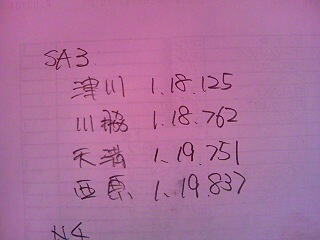 SA3
津川 1.18.125
川脇 1.18.762
天満 1.19.751
西原 1.19.837
N4